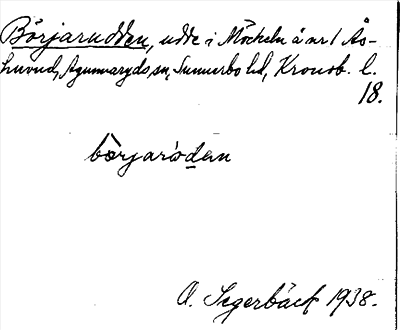 Börjarudden, udde i Möckeln å nr 1 Ås-
huvud, Agunnaryds sn, Sunnerbo hd, Kronob. l.
18.
börjaròdæn
O. Segerbäck 1938.